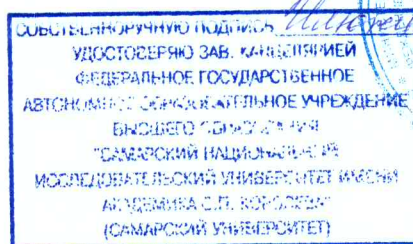 СОБСТВЕННОРУЧНУЮ ПОДПИСЬ
УДОСТОВЕРЯЮ ЗАВ. КАНЦЕЛЯРИЕЙ
ФЕДЕРАЛЬНОЕ ГОСУДАРСТВЕННОЕ
АВТОНОМНОЕ ОБРАЗОВАТЕЛЬНОЕ УЧРЕЖДЕНИЕ
ВЫСШЕГО ОБРАЗОВАНИЯ
"САМАРСКИЙ НАЦИОНАЛЬНЫЙ
ИССЛЕДОВАТЕЛЬСКИЙ УНИВЕРСИТЕТ ИМЕНИ
АКАДЕМИКА С.П. КОРОЛЕВА"
(САМАРСКИЙ УНИВЕРСИТЕТ)